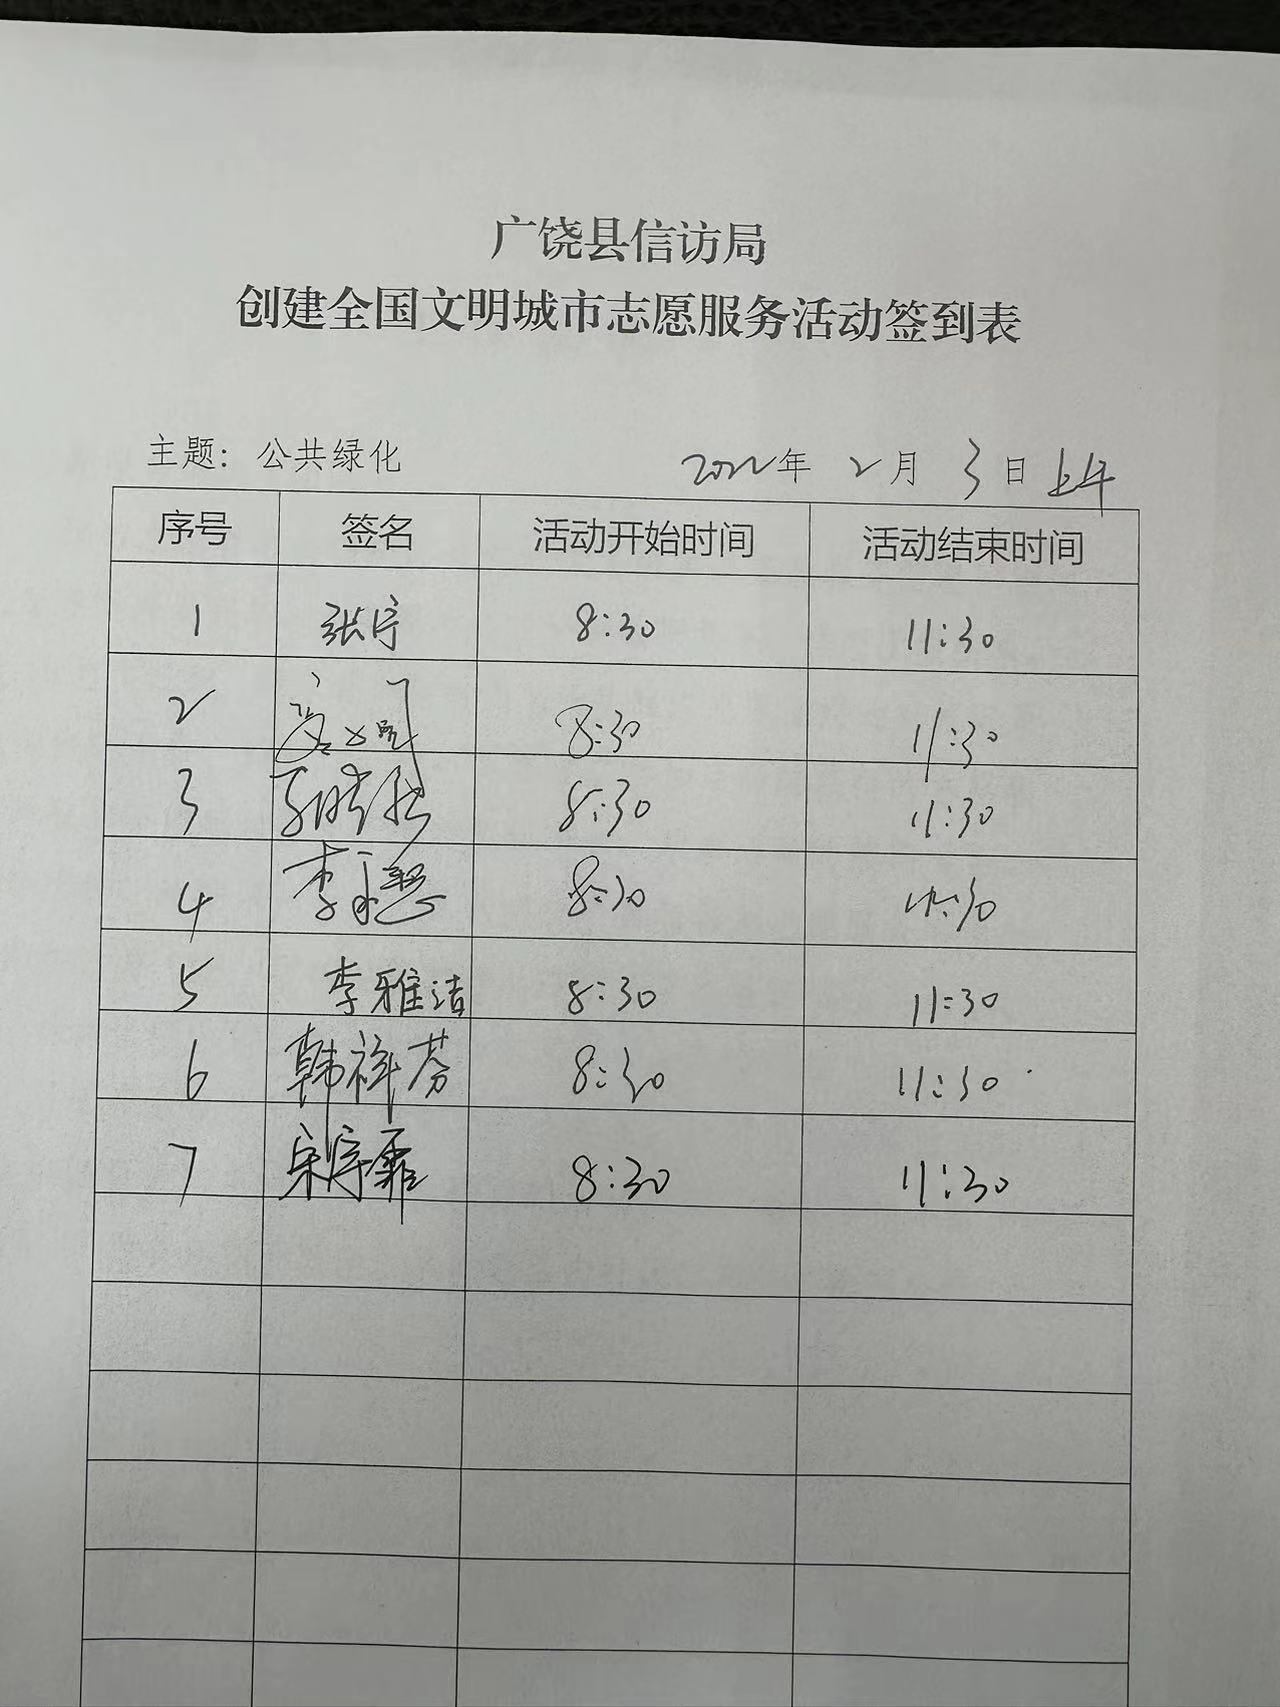 广饶县信访局
创建全国文明城市志愿服务活动签到表
主题：公共绿化 2022年 2月 3日 上午
序号 签名 活动开始时间 活动结束时间
1 张宇 8:30 11:30
2 8:30 11:30
3 8:30 11:30
4 李 8:30 11:30
5 李雅洁 8:30 11:30
6 韩祥芬 8:30 11:30
7 宋宇霏 8:30 11:30